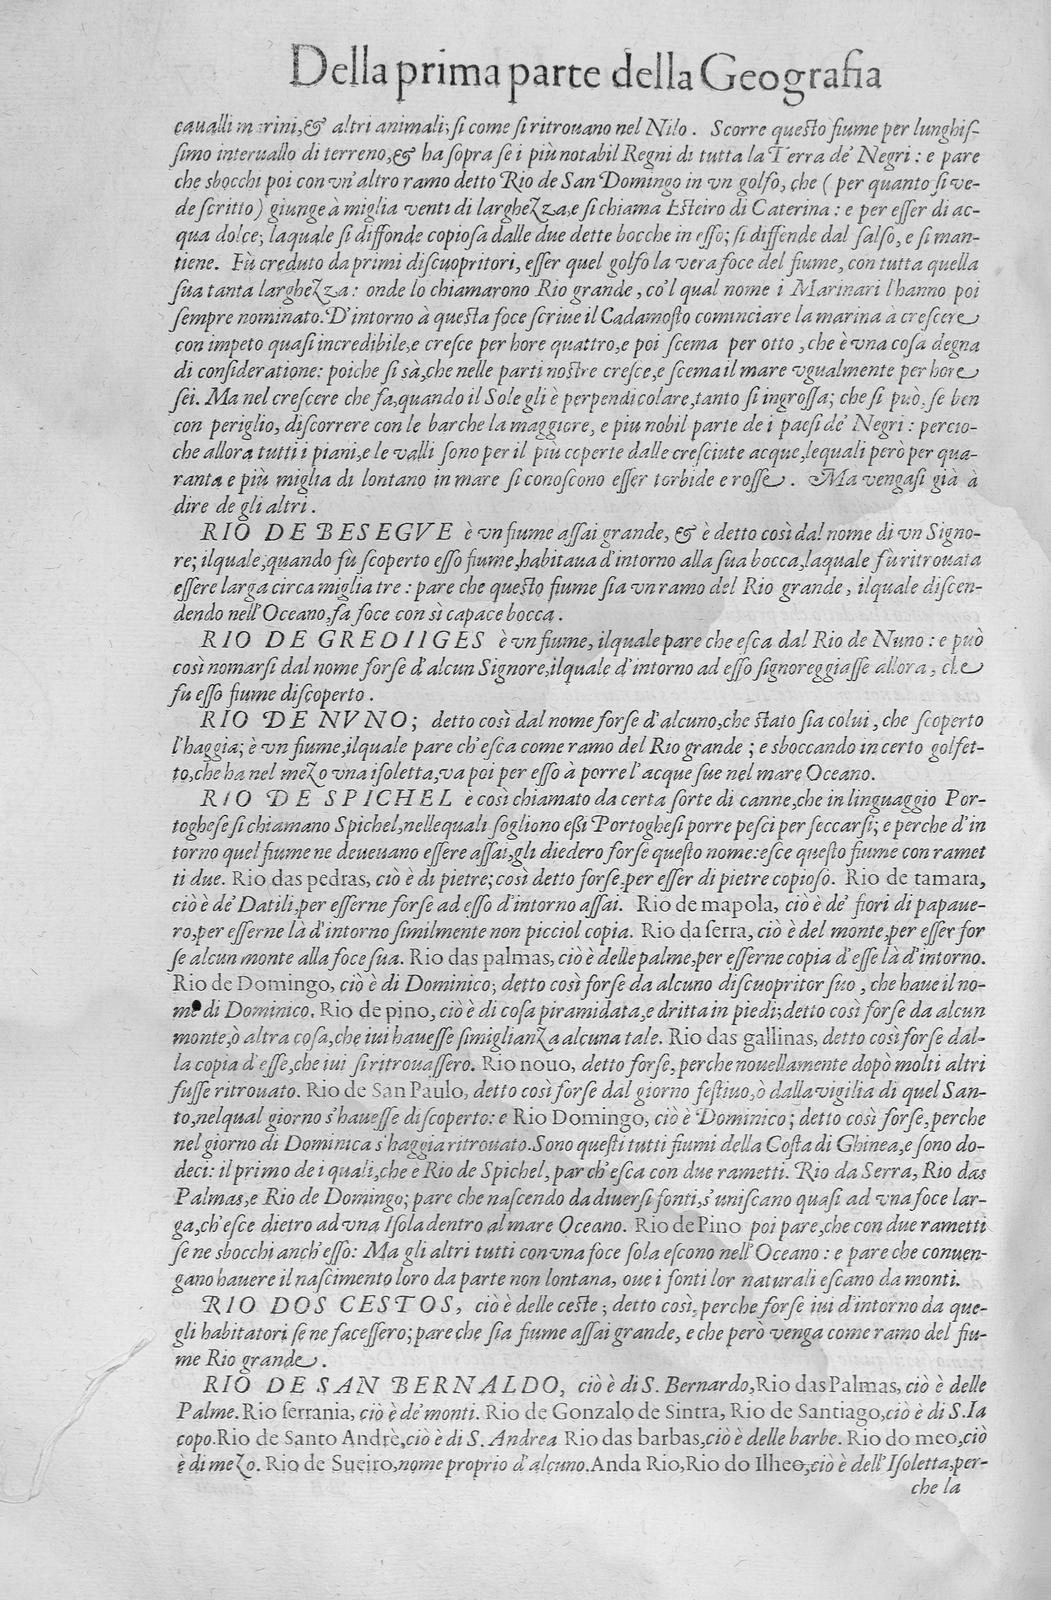 Della prima parte della Geografia
caualli marini, & altri animali; si come si ritrouano nel Nilo. Scorre questo fiume per lunghis-
simo interuallo di terreno, & ha sopra se i più notabil Regni di tutta la Terra de' Negri: e pare
che sbocchi poi con vn'altro ramo detto Rio de San Domingo in vn golfo, che (per quanto si ve-
de scritto) giunge à miglia venti di larghezza, e si chiama Esteiro di Caterina: e per esser di ac-
qua dolce; laquale si diffonde copiosa dalle due dette bocche in esso; si diffende dal salso, e si man-
tiene. Fù creduto da primi discuopritori, esser quel golfo la vera foce del fiume, con tutta quella
sua tanta larghezza: onde lo chiamarono Rio grande, co'l qual nome i Marinari l'hanno poi
sempre nominato. D'intorno à questa foce scriue il Cadamosto cominciare la marina à crescere
con impeto quasi incredibile, e cresce per hore quattro, e poi scema per otto, che è vna cosa degna
di consideratione: poiche si sà, che nelle parti nostre cresce, e scema il mare vgualmente per hore
sei. Ma nel crescere che fa, quando il Sole gli è perpendicolare, tanto si ingrossa; che si può, se ben
con periglio, discorrere con le barche la maggiore, e più nobil parte de i paesi de' Negri: percio-
che allora tutti i piani, e le valli sono per il più coperte dalle cresciute acque, lequali però per qua-
ranta e più miglia di lontano in mare si conoscono esser torbide e rosse. Ma vengasi già à
dire de gli altri.
RIO DE BESEGVE è vn fiume assai grande, & è detto così dal nome di vn Signo-
re; ilquale, quando fù scoperto esso fiume, habitaua d'intorno alla sua bocca, laquale fù ritrouata
essere larga circa miglia tre: pare che questo fiume sia vn ramo del Rio grande, ilquale discen-
dendo nell'Oceano, fa foce con sì capace bocca.
RIO DE GREDIIGES è vn fiume, ilquale pare che esca dal Rio de Nuno: e può
così nomarsi dal nome forse d'alcun Signore, ilquale d'intorno ad esso signoreggiasse allora, che
fù esso fiume discoperto.
RIO DE NVNO; detto così dal nome forse d'alcuno, che stato sia colui, che scoperto
l'haggia; è vn fiume, ilquale pare ch'esca come ramo del Rio grande; e sboccando in certo golfet-
to, che ha nel mezo vna isoletta, va poi per esso à porre l'acque sue nel mare Oceano.
RIO DE SPICHEL è così chiamato da certa sorte di canne, che in linguaggio Por-
toghese si chiamano Spichel, nellequali sogliono eßi Portoghesi porre pesci per seccarsi; e perche d'in
torno quel fiume ne deueuano essere assai, gli diedero forse questo nome: esce questo fiume con ramet
ti due. Rio das pedras, ciò è di pietre; così detto forse, per esser di pietre copioso. Rio de tamara,
ciò è de' Datili, per esserne forse ad esso d'intorno assai. Rio de mapola, ciò è de' fiori di papaue-
ro, per esserne là d'intorno similmente non picciol copia. Rio da serra, ciò è del monte, per esser for
se alcun monte alla foce sua. Rio das palmas, ciò è delle palme, per esserne copia d'esse là d'intorno.
Rio de Domingo, ciò è di Dominico; detto così forse da alcuno discuopritor suo, che haue il no-
me di Dominico. Rio de pino, ciò è di cosa piramidata, e dritta in piedi; detto così forse da alcun
monte, ò altra cosa, che iui hauesse simiglianza alcuna tale. Rio das gallinas, detto così forse dal-
la copia d'esse, che iui si ritrouassero. Rio nouo, detto forse, perche nouellamente dopò molti altri
fusse ritrouato. Rio de San Paulo, detto così forse dal giorno festiuo, ò dalla vigilia di quel San-
to, nelqual giorno s'hauesse discoperto: e Rio Domingo, ciò è Dominico; detto così forse, perche
nel giorno di Dominica s'haggia ritrouato. Sono questi tutti fiumi della Costa di Ghinea, e sono do-
deci: il primo de i quali, che e Rio de Spichel, par ch'esca con due rametti. Rio da Serra, Rio das
Palmas, e Rio de Domingo; pare che nascendo da diuersi fonti, s'uniscano quasi ad vna foce lar-
ga, ch'esce dietro ad vna Isola dentro al mare Oceano. Rio de Pino poi pare, che con due rametti
se ne sbocchi anch'esso: Ma gli altri tutti con vna foce sola escono nell'Oceano: e pare che conuen-
gano hauere il nascimento loro da parte non lontana, oue i fonti lor naturali escano da monti.
RIO DOS CESTOS, ciò è delle ceste; detto così, perche forse iui d'intorno da que-
gli habitatori se ne facessero; pare che sia fiume assai grande, e che però venga come ramo del fiu-
me Rio grande.
RIO DE SAN BERNALDO, ciò è di S. Bernardo, Rio das Palmas, ciò è delle
Palme. Rio serrania, ciò è de' monti. Rio de Gonzalo de Sintra, Rio de Santiago, ciò è di S. Ia
copo. Rio de Santo Andrè, ciò è di S. Andrea Rio das barbas, ciò è delle barbe. Rio do meo, ciò
è di mezo. Rio de Sueiro, nome proprio d'alcuno. Anda Rio, Rio do Ilheo, ciò è dell'Isoletta, per-
che la